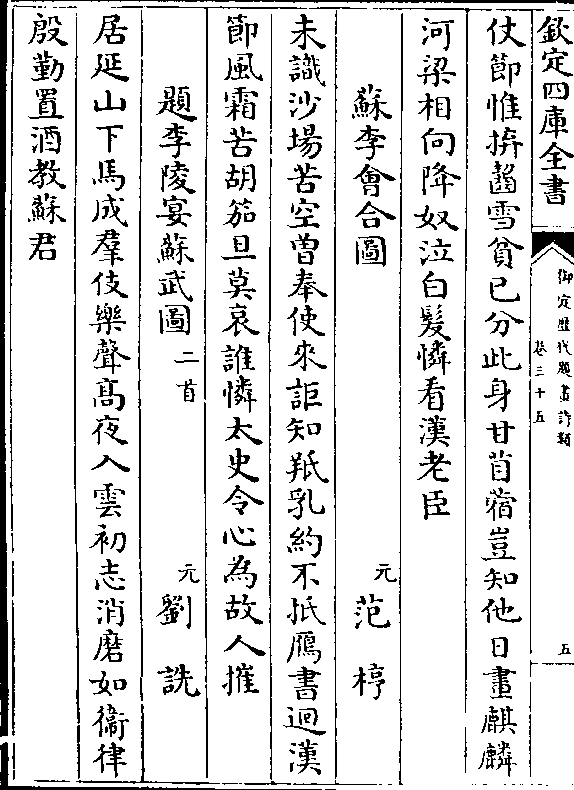 欽定四庫全書
御定歷代題畫詩類
卷三十五
五
仗節惟拚齧雪貧已分此身甘苜蓿豈知他日畫麒麟
河梁相向降奴泣白髮憐看漢老臣
蘇李會合圖 元 范梈
未識沙塲苦空曽奉使來詎知羝乳約不抵鴈書迴漢
節風霜苦胡笳旦莫哀誰憐太史令心為故人摧
題李陵宴蘇武圖 二首 元 劉詵
居延山下馬成羣伎樂聲髙夜入雲初志消磨如衞律
殷勤置酒教蘇君